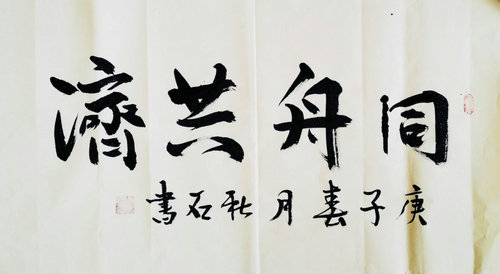 同舟共濟
庚子春月秋石書